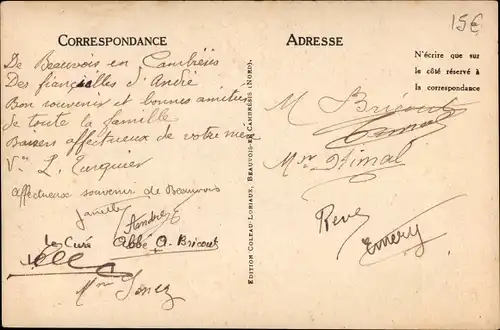 15€
CORRESPONDANCE
De Beauvois en Cambrésis
Des fiançailles d'André
Bon souvenir et bonnes amitiés
de toute la famille
Baisers affectueux de votre mère
Vve L. Turquier
Affectueux souvenir de Beauvois
André
Abbé A. Bricout
Mme
EDITION COLEAU-LORIAUX, BEAUVOIS-EN-CAMBRÉSIS (NORD).
ADRESSE
N'écrire que sur
le côté réservé à
la correspondance
M Bricout
Mme Dhimal
René
Emery